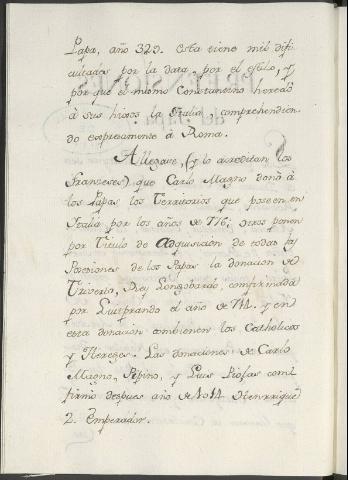 Papa, año 325. Esta tiene mil difi
cultades por la data, por el estilo, y
por que el mismo Constantino heredó
à sus hijos la Italia, comprehendien
do expresamente à Roma.
Allegase, (y lo acreditan los
Franzeses) que Carlo Magno donó à
los Papas los Territorios que poseen en
Italia por los años de 776; otros ponen
por Titulo de Adquisicion de todas las
Posesiones de los Papas la donacion de
Triverto, Rey Longobardo, comprimada
por Luitprando el año de 714. y en
esta donacion combienen los Catholicos
y Hereges. Las donaciones de Carlo
Magno, Pipino, y Luis Piofas con
firmó despues año de 1014 Henrrique
2. Emperador.